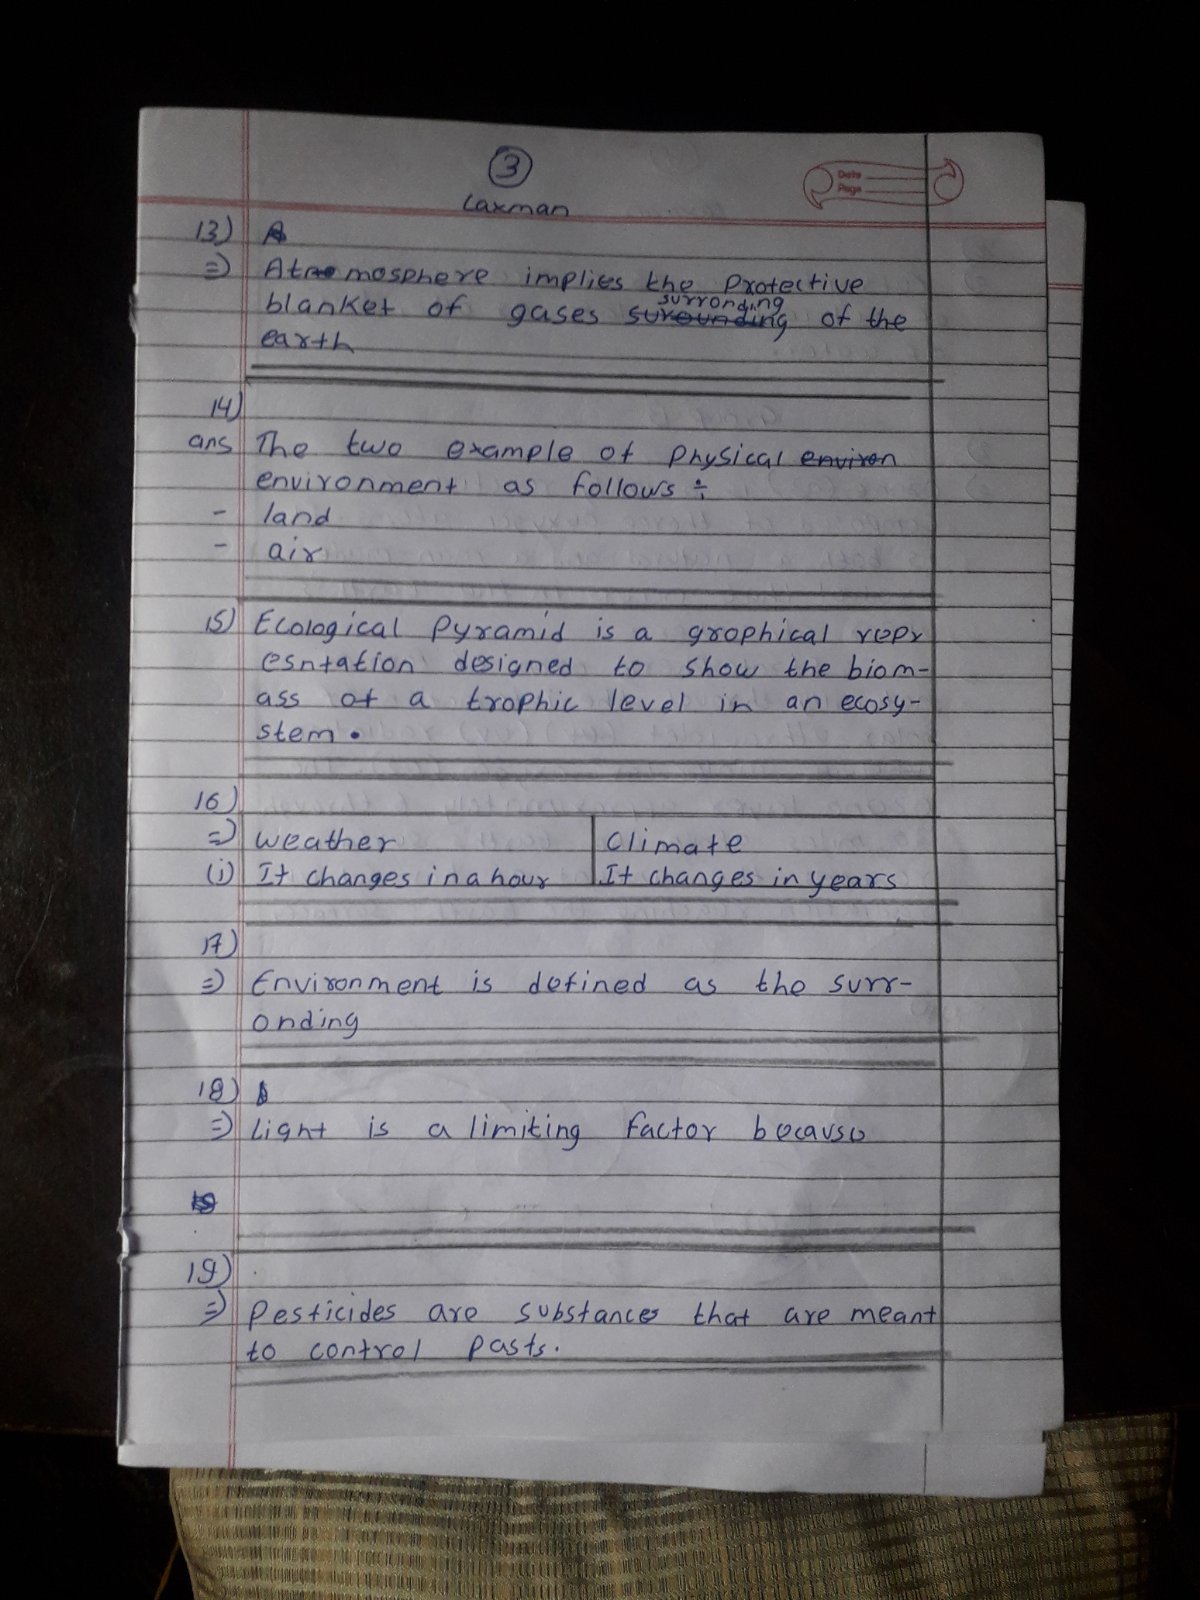 3
Date
Page
Laxman
13)
=) Atmosphere implies the protective
blanket of gases surronding of the
earth
14)
ans The two example of physical environ
environment as follows ÷
- land
- air
15) Ecological pyramid is a grophical repr
esntation designed to show the biom-
ass of a trophic level in an ecosy-
stem.
16)
=) weather | climate
(i) It changes in a hour | It changes in years
17)
=) Environment is defined as the surr-
onding
18)
=) Light is a limiting factor because
19)
=) Pesticides are substances that are meant
to control pasts.